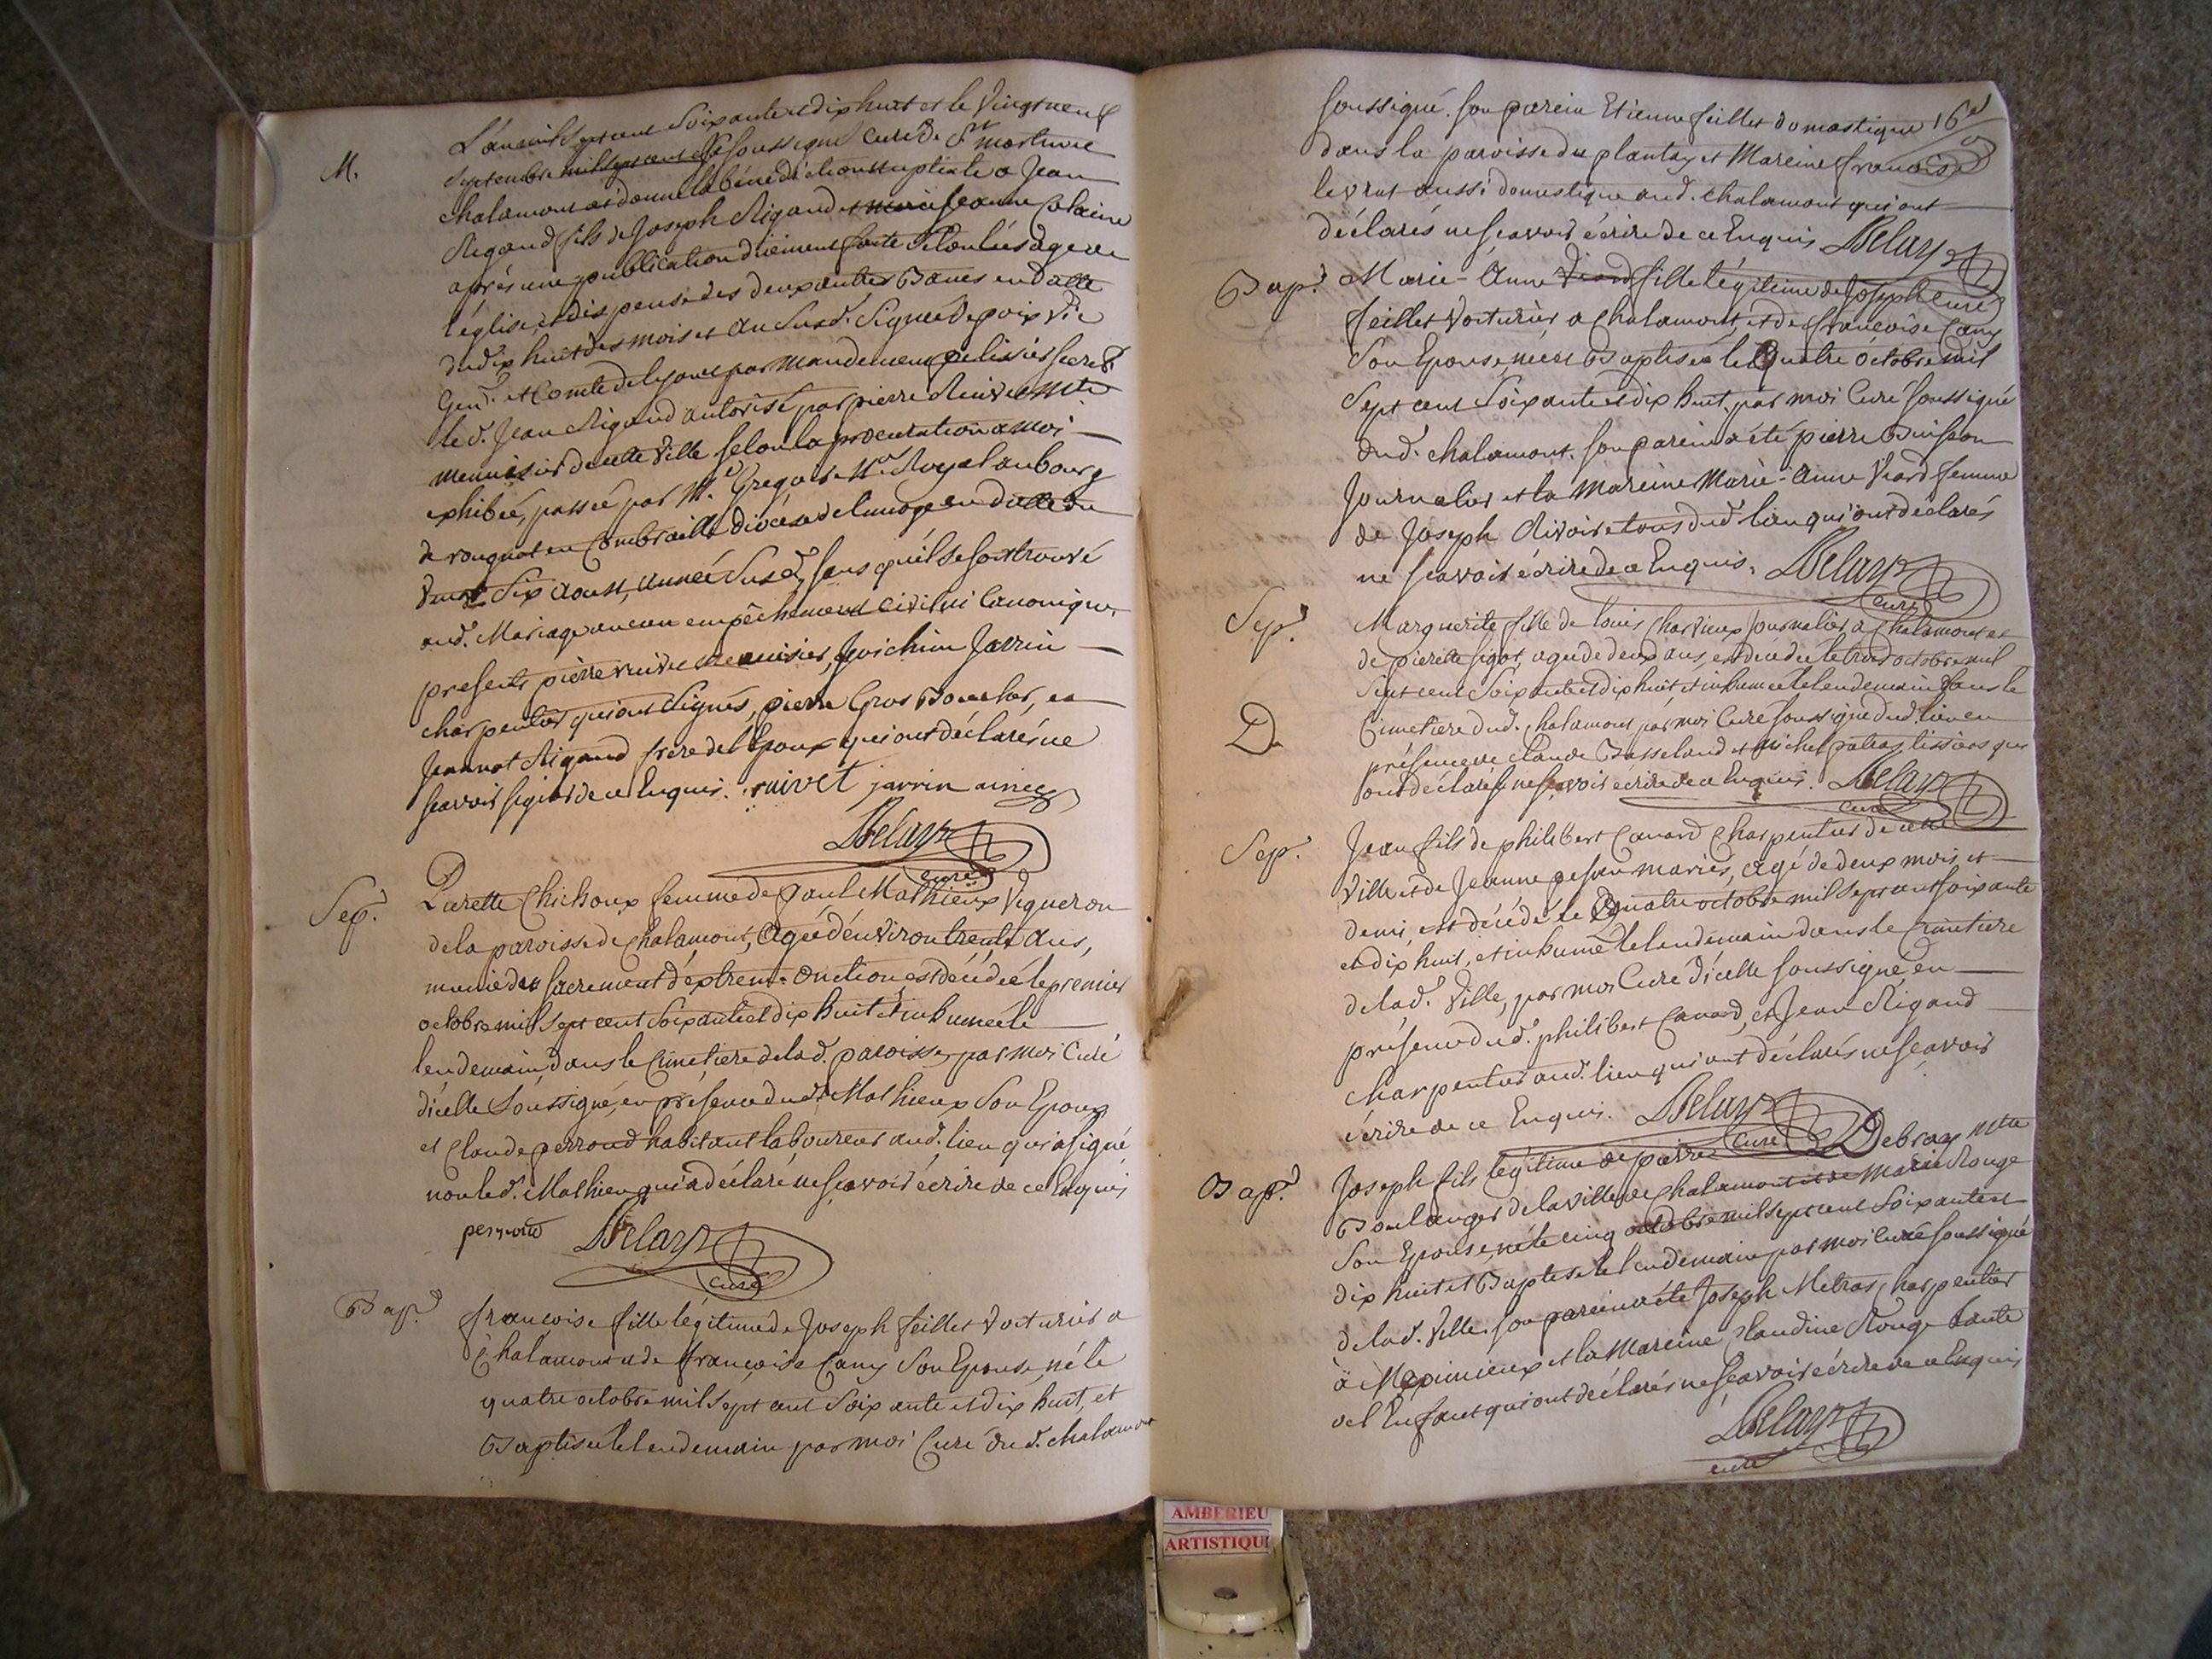 M.
L'an mil sept cent soixante et dix huit et le vingt neuf
septembre je soussigné curé de St martin de
chalamont ai donné la bénédiction nuptiale a Jean
Rigaud fils de Joseph Rigaud et Jeanne
après une publication düement faite selon l'usage de
l'église, et dispense des deux autres Bancs en datte
du dix huit des mois et an susd. signée De poix Vic
Gen.l et Comte de lyon et par Mandement pelissier secret.
le d. Jean Rigaud autorisé par pierre Ruivet mtre
menuisier de cette ville selon la procuration a moi
exhibée, passée par Mr. Gregoire Nre. Royal au bourg
de rougnat en Combraille diocèse de limoge en datte du
vingt Six aoust, année susd. sans qu'il se soit trouvé
aud. Mariage aucun empêchement civil ni Canonique,
presents pierre ruivet menuisier, Joachim Jarrin
charpentier qui ont signés, pierre Gros Boucher, et
Jeannot Rigaud frère de l'Epoux qui ont déclarés ne
scavoir signer de ce Enquis. ruivet jarrin ainé
Delay
curé
Sep.
Pierette Chichoux femme de paul Mathieux Vigneron
de la paroisse de Chalamont, agée d'environ trente ans,
munie du sacrement d'extreme-onction est décédée le premier
octobre mil sept cent soixante et dix huit et inhumée le
lendemain dans le Cimetiere de lad. paroisse, par moi Curé
d'icelle soussigné, en présence dud. Mathieux son Epoux
et Claude perroud habitant laboureur aud. lieu qui a signé
non led. Mathieu qui a déclaré ne scavoir écrire de ce Enquis
perroud Delay
curé
Bap.
françoise fille légitime de Joseph feillet Voiturier a
Chalamont et de françoise Cany son Epouse, né le
quatre octobre mil sept cent soixante et dix huit, et
Baptisée le lendemain par moi Curé dud. chalamont
soussigné. son parein Etienne feillet domestique 16
dans la paroisse du plantay et Mareine françoise
levrat aussi domestique aud. chalamont qui ont
déclarés ne scavoir écrire de ce Enquis Delay
curé
Bap.
Marie-Anne fille légitime de Joseph
feillet Voiturier a Chalamont, et de françoise Cany
son Epouse, née et Baptisée le quatre octobre mil
sept cent soixante et dix huit, par moi Curé soussigné
dud. chalamont. son parein a été pierre Buisson
Journalier et la Mareine Marie-Anne Viard femme
de Joseph Rivoire tous dud. lieu qui ont déclarés
ne scavoir écrire de ce Enquis. Delay
curé
Sep.
Marguerite fille de louis Journalier a Chalamont et
de pierette agée de deux ans, est décédée le trois octobre mil
sept cent soixante et dix huit et inhumée le lendemain dans le
D.
Cimetiere dud. chalamont par moi Curé soussigné dud. lieu en
présence de Claude et michel tissiers qui
ont déclarés ne scavoir écrire de ce Enquis. Delay
curé
Sep.
Jean fils de philibert Canard Charpentier de cette
Ville et de Jeanne mariés, agé de deux mois et
demi, est décédé le quatre octobre mil sept cent soixante
et dix huit, et inhumé le lendemain dans le Cimetiere
de lad. Ville, par moi Curé d'icelle soussigné en
présence dud. philibert Canard, et Jean Rigaud
charpentier aud. lieu qui ont déclarés ne scavoir
écrire de ce Enquis. Delay
curé
Bap.
Joseph fils légitime de pierre Debray mtre
Boulanger de la ville de Chalamont et de Marie Rouge
son Epouse, né le cinq octobre mil sept cent soixante et
dix huit et Baptisé le lendemain par moi curé soussigné
de lad. Ville. son parein a été Joseph Metras charpentier
à Meximieux et la Mareine Claudine Rouge tante
de l'Enfant qui ont déclarés ne scavoir écrire de ce Enquis
Delay
curé
AMBERIEU
ARTISTIQU